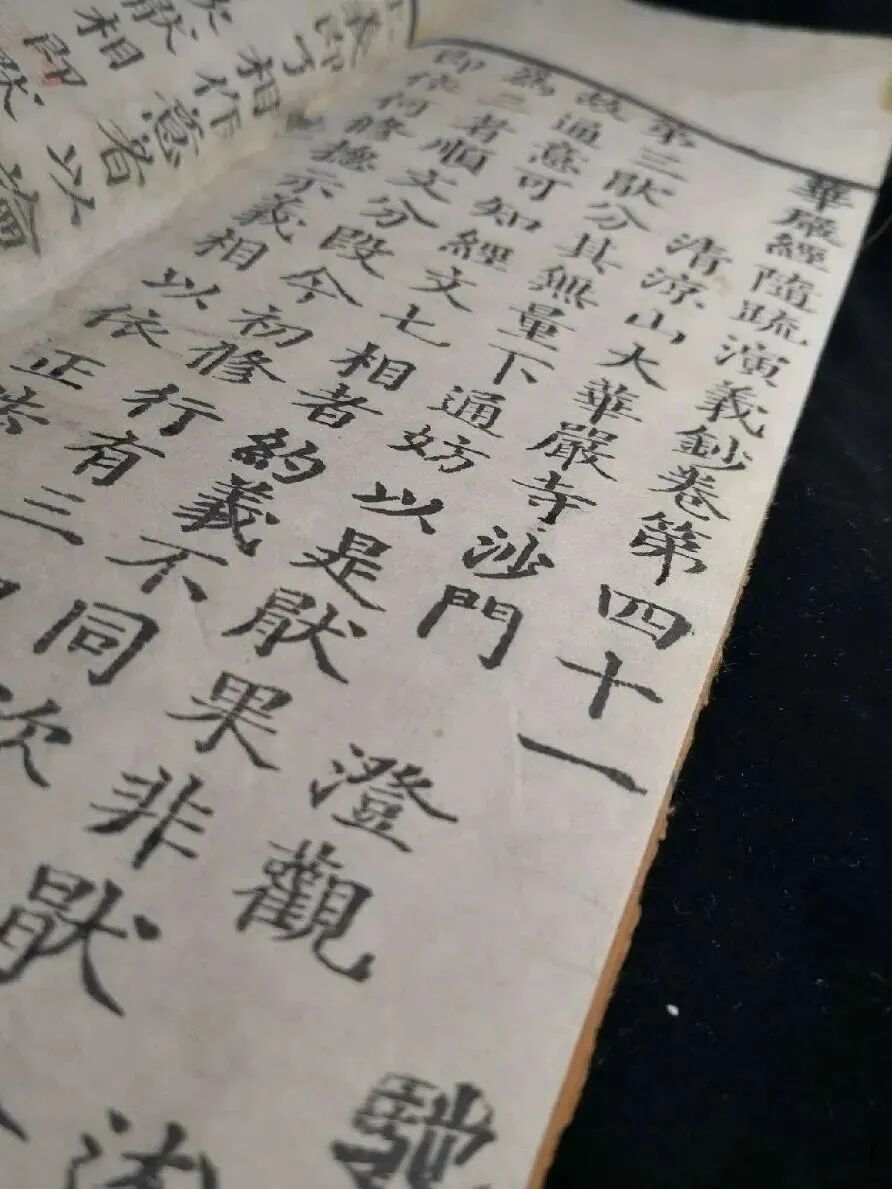 華嚴經隨疏演義鈔卷第四十一
清涼山大華嚴寺沙門 澄觀
第三猒分其無量下通妨以是猒果非猒
故通意可知經文七相者約義不同次
為二者順文分段今初修行有三
即依何修摠示義相以依正法
相作意者以
猒相即